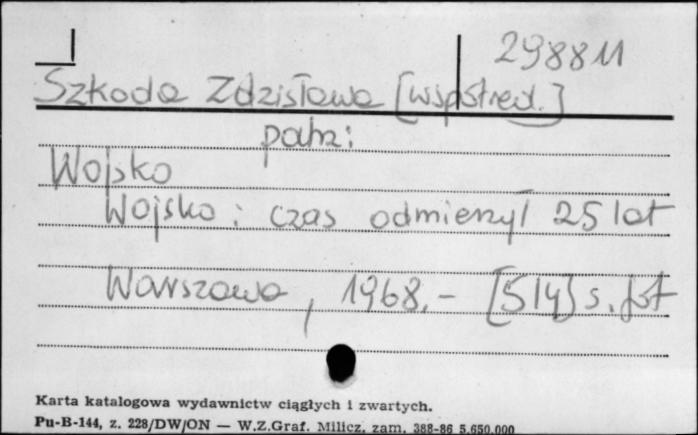 298811
Szkoda Zdzisława [współred.]
patrz:
Wojsko
Wojsko: czas odmierzył 25 lat
Warszawa, 1968.- [514] s. fot
Karta katalogowa wydawnictw ciągłych i zwartych.
Pu-B-144, z. 228/DW/ON — W.Z.Graf. Milicz, zam. 388-86 5.650.000